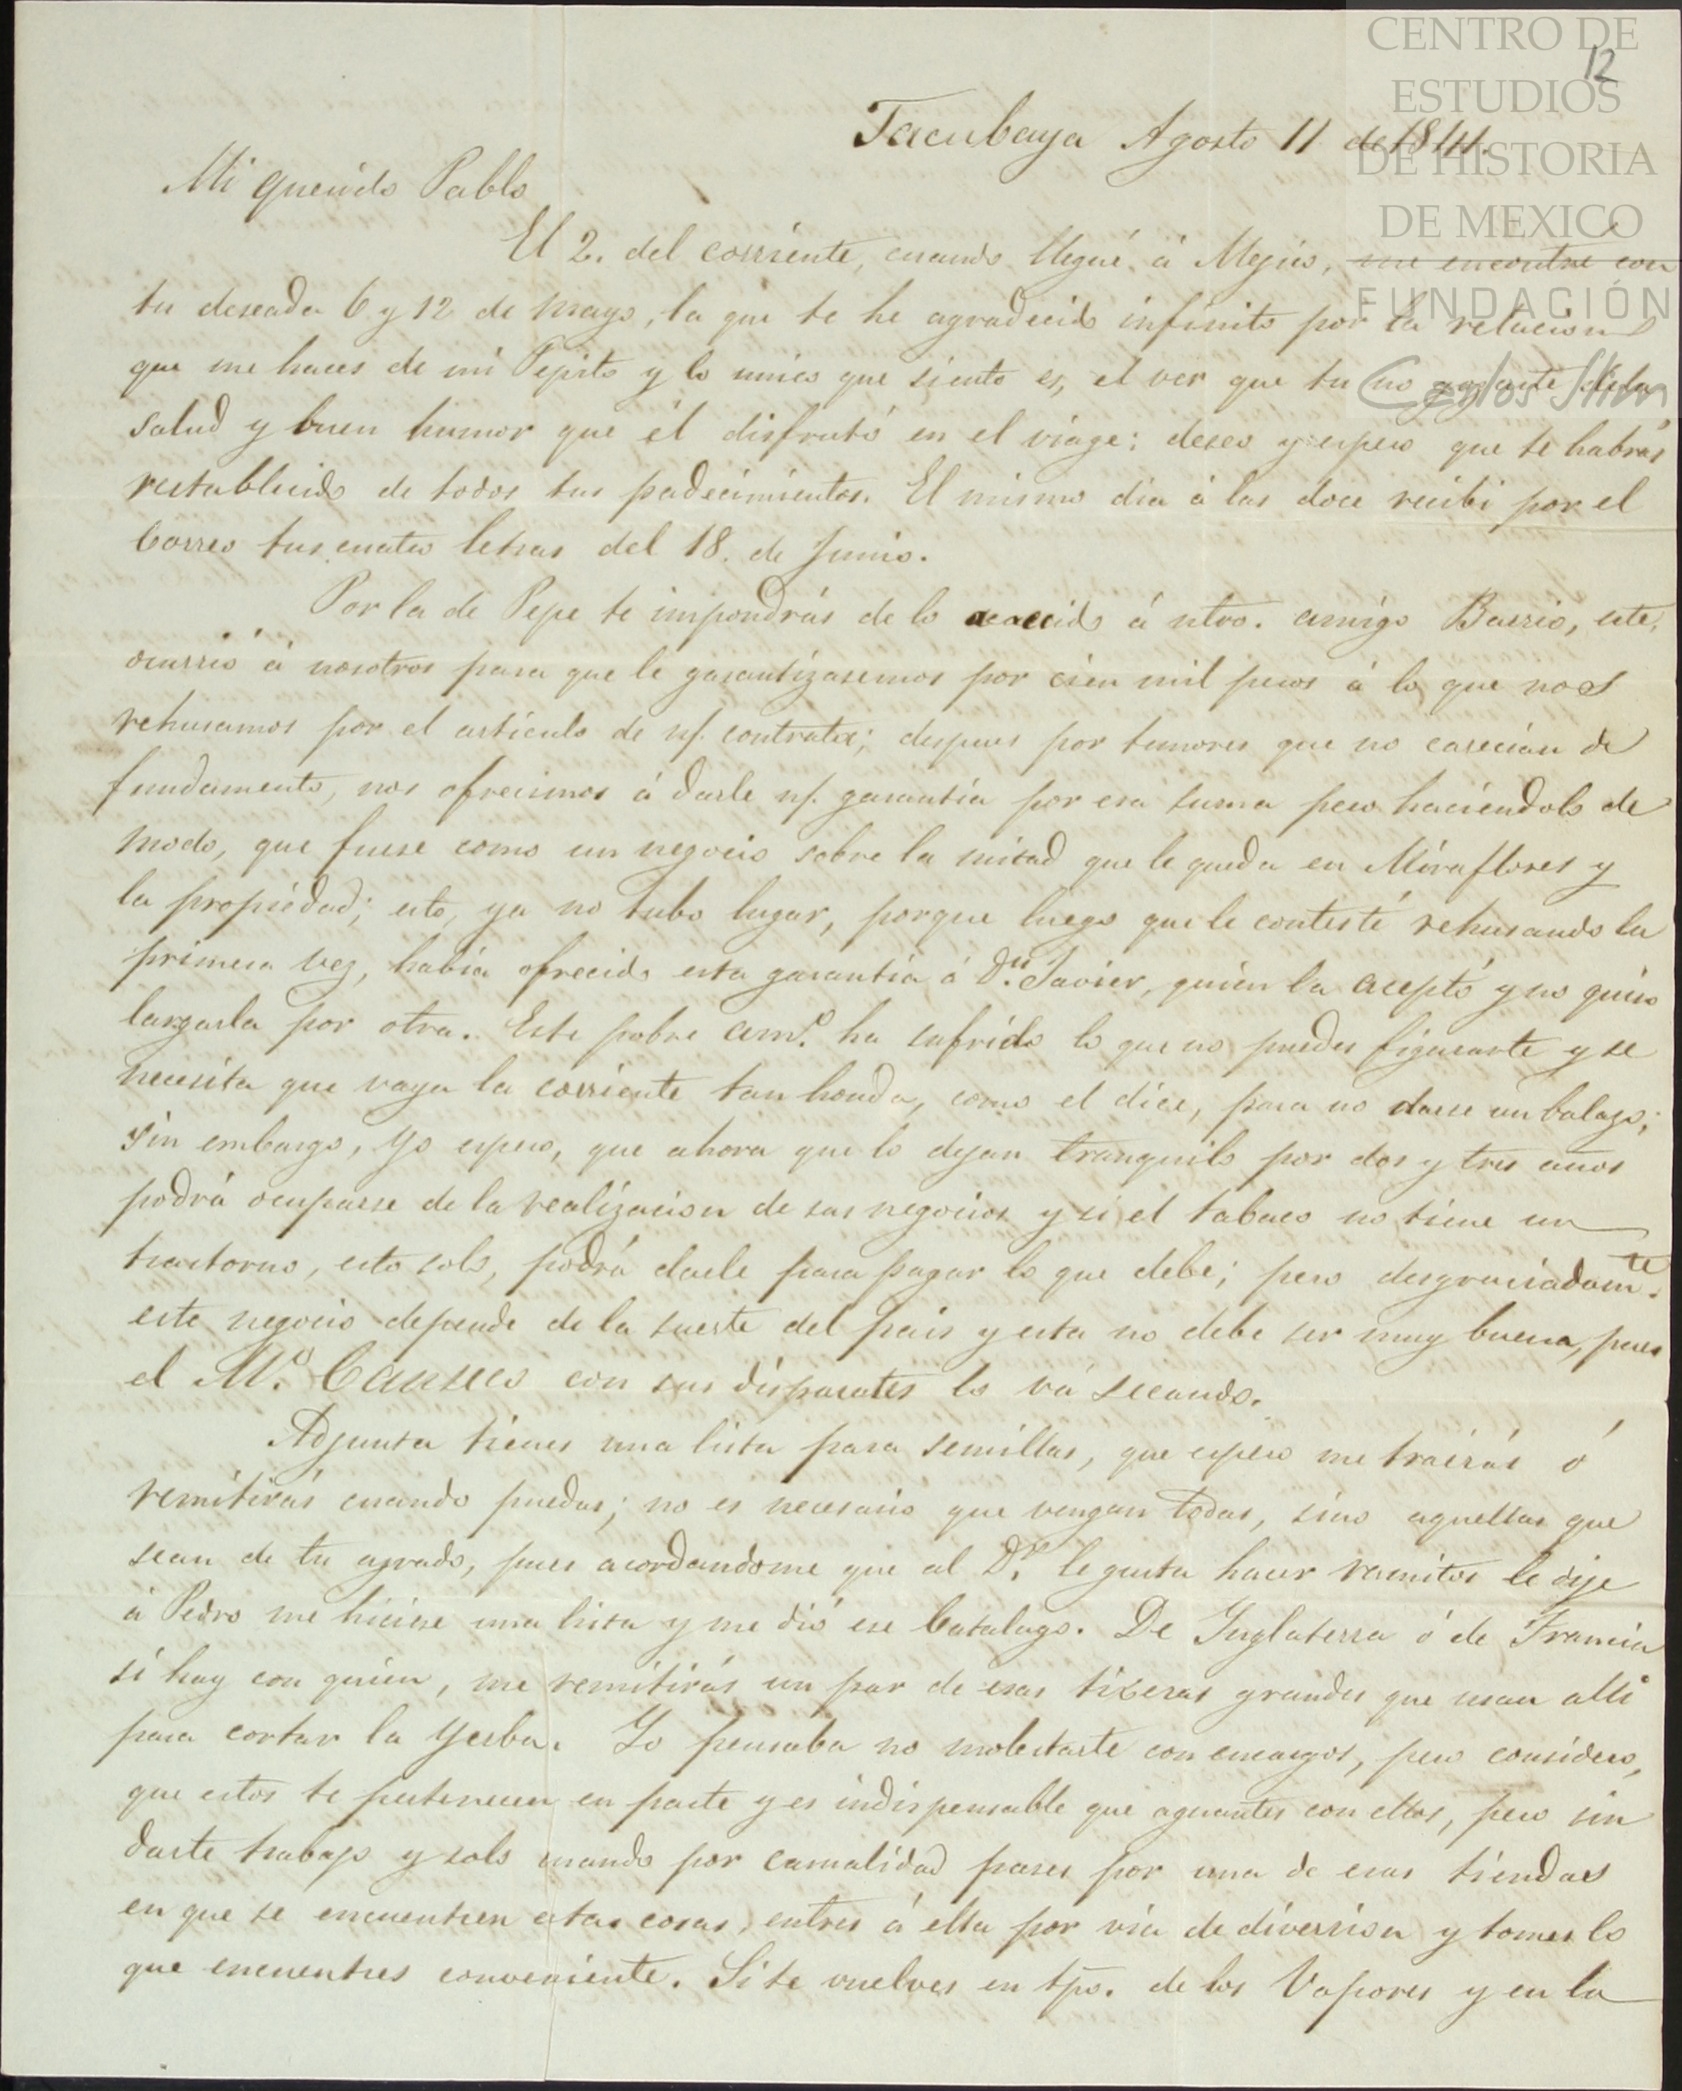 CENTRO DE
ESTUDIOS
DE HISTORIA
DE MEXICO
FUNDACIÓN
Carlos Slim
12
Tacubaya Agosto 11 de 1844.
Mi querido Pablo
El 2. del corriente, cuando llegué á Mejico, me encontré con
tu deseada 6 y 12 de mayo, la que te he agradecido infinito por la relacion
que me haces de mi Pepito y lo unico que siento es, el ver que tu no de la
salud y buen humor que él disfrutó en el viage: deseo y espero que te habrás
restablecido de todos tus padecimientos. El mismo dia á las doce recibi por el
Correo tus cuatro letras del 18. de Junio.
Por la de Pepe te impondrás de lo acaecido á ntro. amigo Barrio, este,
ocurrió á nosotros para que le garantizasemos por cien mil pesos á lo que nos
rehusamos por el articulo de n/. contrata; despues por temores que no carecian de
fundamento, nos ofrecimos á darle n/. garantia por esa suma pero haciendolo de
modo, que fuese como un negocio sobre la mitad que le queda en Miraflores y
la propiedad; esto, ya no tubo lugar, porque luego que le contesté rehusando la
primera vez, habia ofrecido esta garantia á Dn. Javier, quien la aceptó y no quiso
largarla por otra. Este pobre amo. ha sufrido lo que no puedes figurarte y se
necesita que vaya la corriente tan honda, como el dice, para no darse un balazo;
sin embargo, yo espero, que ahora que lo dejan tranquilo por dos y tres años
podrá ocuparse de la realizacion de sus negocios y si el tabaco no tiene un
trastorno, esto solo, podrá darle para pagar lo que debe; pero desgraciadamte.
este negocio depende de la suerte del pais y esta no debe ser muy buena, pues
el Mo. Canseco con sus disparates lo vá secando.
Adjunta tienes una lista para semillas, que espero me traerás ó
remitirás cuando puedas; no es necesario que vengan todas, sino aquellas que
sean de tu agrado, pues acordandome que al Dr. le gusta hacer ramitos le dije
á Pedro me hiciese una lista y me dió ese Catalogo. De Inglaterra ó de Francia
si hay con quien, me remitirás un par de esas tixeras grandes que usan alli
para cortar la yerba. Yo pensaba no molestarte con encargos, pero considero,
que estos te pertenecen en parte y es indispensable que aguantes con ellos, pero sin
darte trabajo y solo cuando por casualidad pases por una de esas tiendas
en que se encuentren estas cosas, entres á ella por via de diversion y tomes lo
que encuentres conveniente. Si te vuelves en tpo. de los Vapores y en la